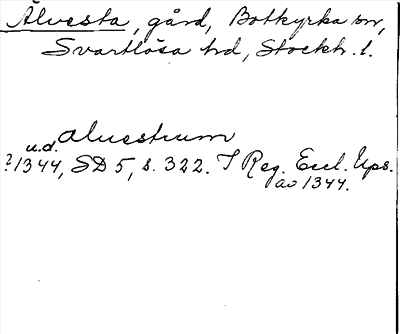 Älvesta, gård, Botkyrka sn,
Svartlösa hd, Stockh. l.
alvestum
u.d.
?1344, SD 5, s. 322. I Reg. Eccl. Ups.
av 1344.